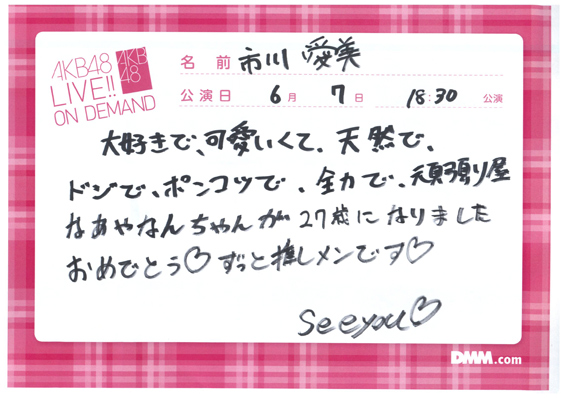 AKB48
LIVE!!
ON DEMAND
AKB
48
名前 市川 愛美
公演日 6月 7日 18:30 公演
大好きで、可愛いくて、天然で、
ドジで、ポンコツで、全力で、頑張り屋
なあやなんちゃんが27歳になりました
おめでとう♡ずっと推しメンです♡
See you♡
DMM.com